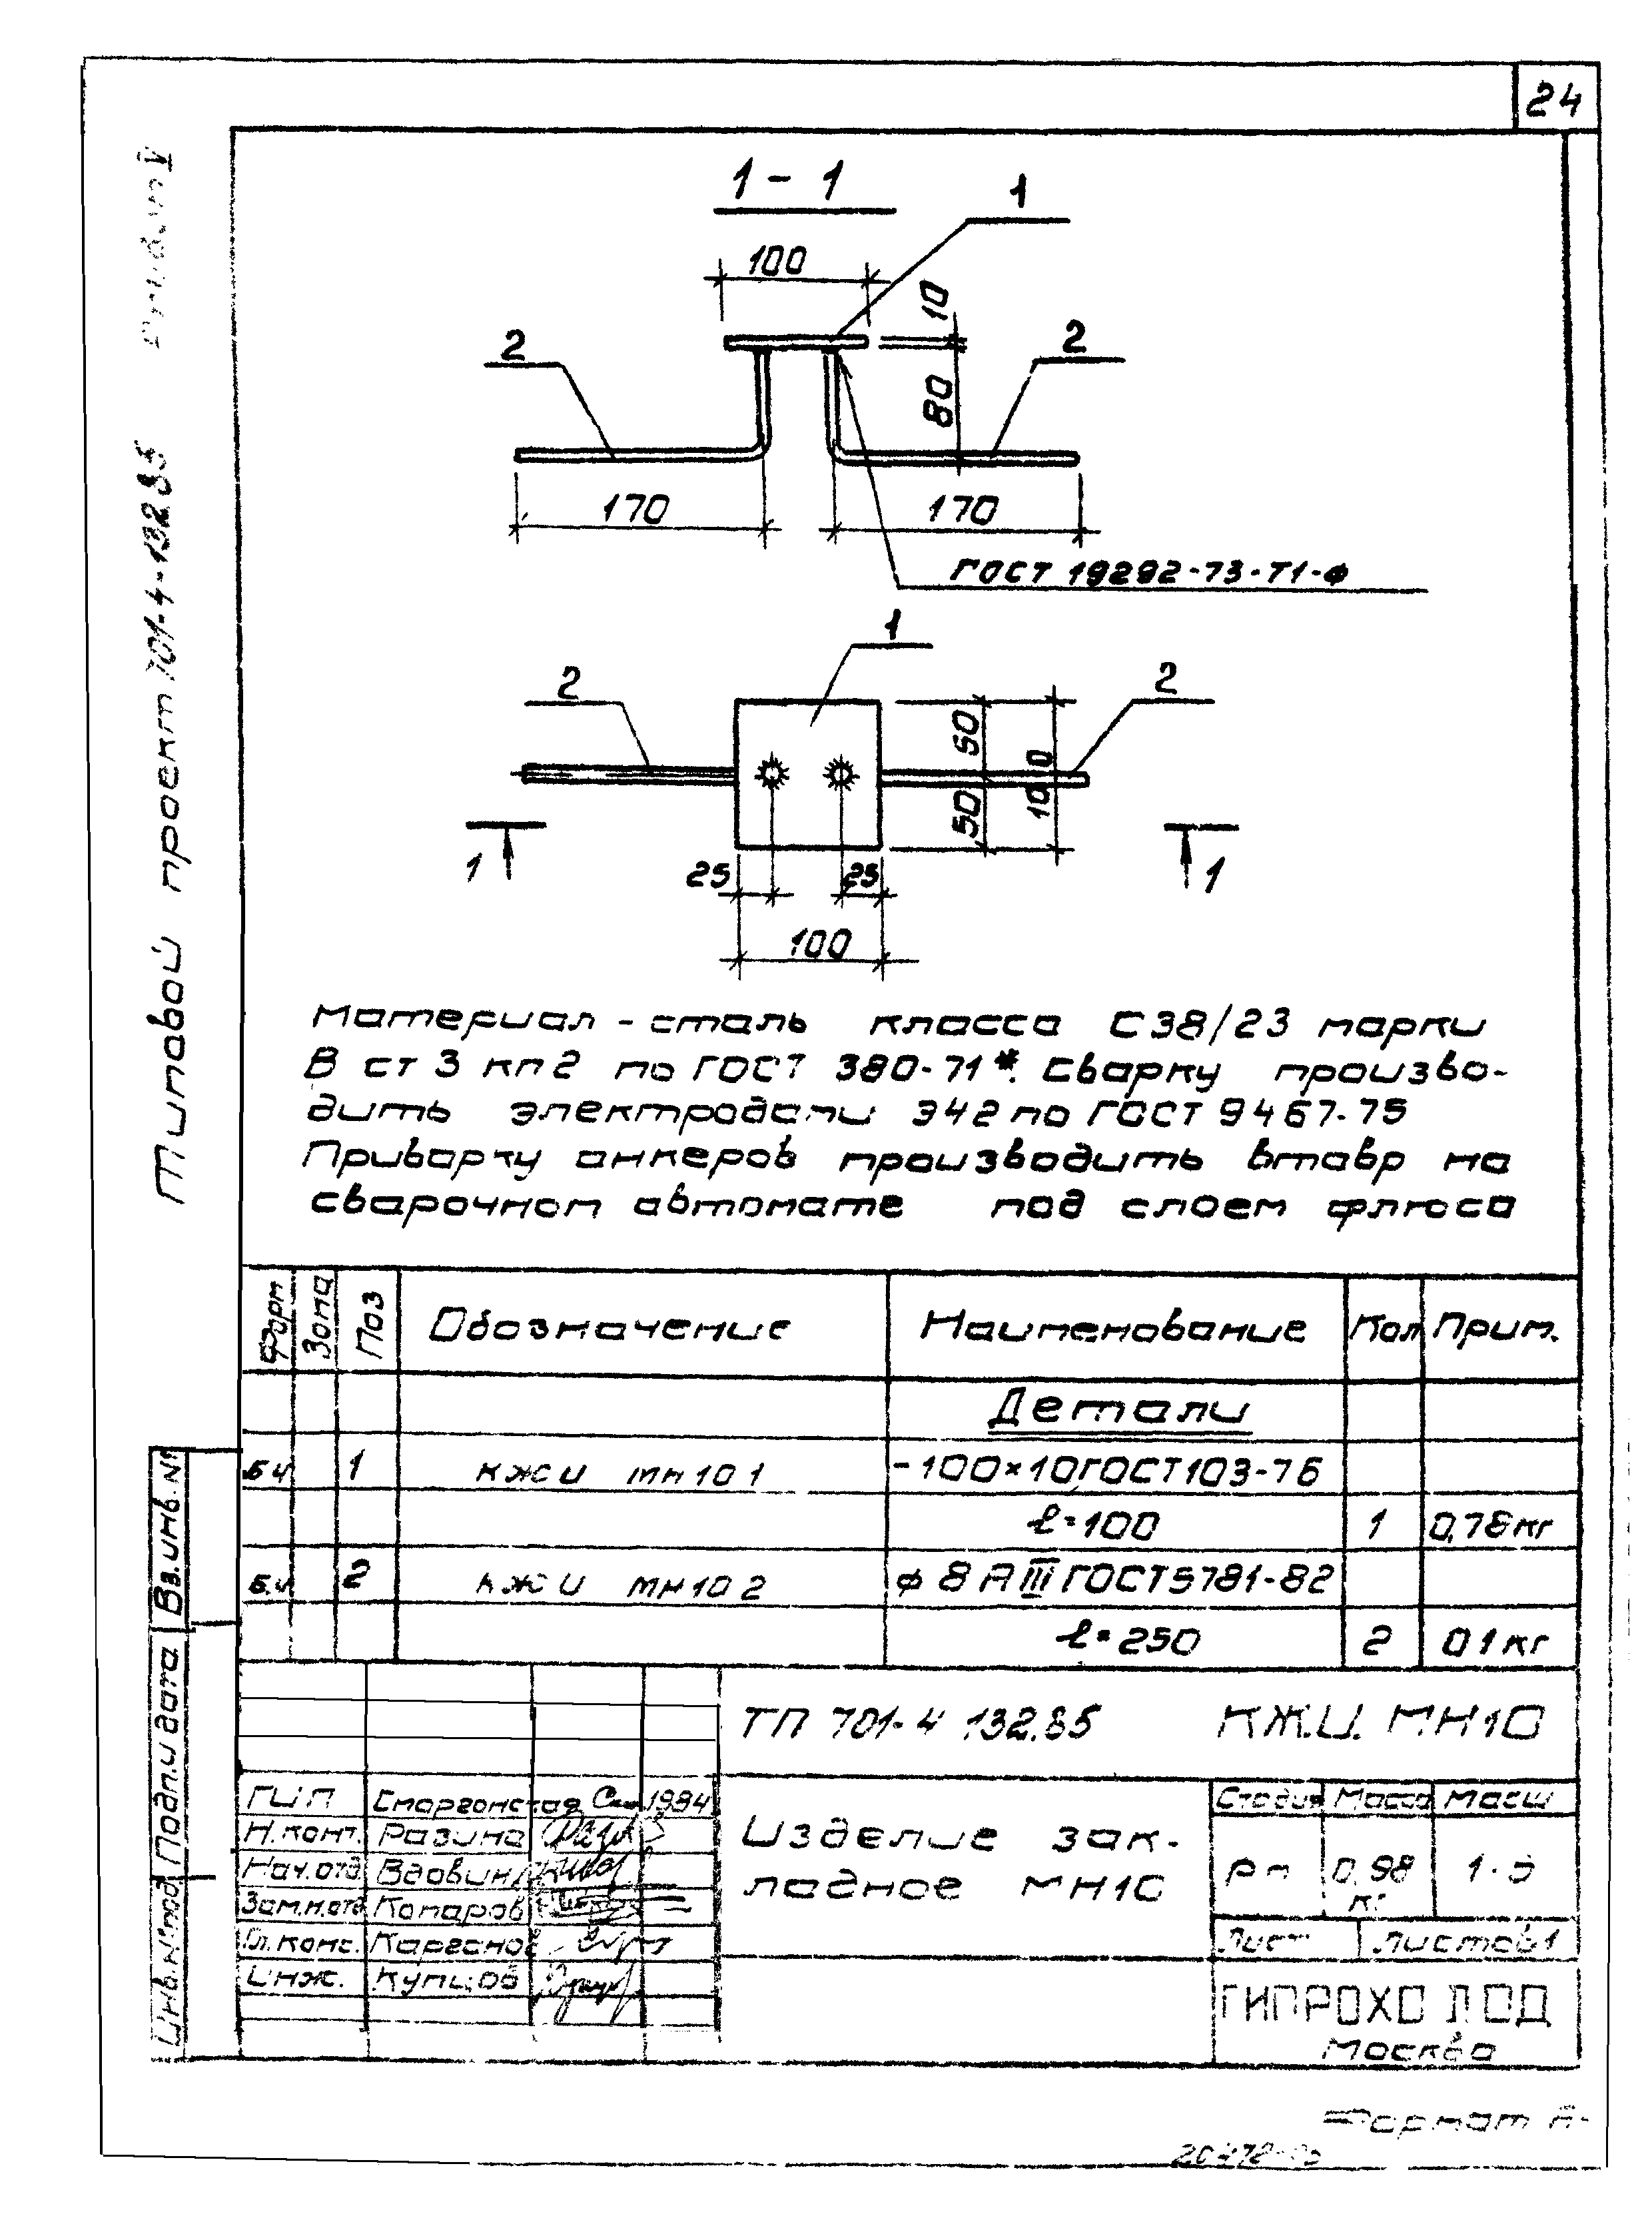 24
1 - 1
1
100
10
2
2
80
170
170
ГОСТ 19292-73-Т1-Ф
1
2
2
50
50
100
1
1
25
25
100
Материал - сталь класса С38/23 марки
В ст 3 кп2 по ГОСТ 380-71*. Сварку произво-
дить электродами Э42 по ГОСТ 9467-75
Приварку анкеров производить втавр на
сварочном автомате под слоем флюса
Форм Зона Поз Обозначение Наименование Кол Прим.
Детали
Б.ч 1 КЖИ МН10 1 -100×10 ГОСТ 103-76
ℓ=100 1 0,78кг
Б.ч 2 КЖИ МН10 2 ϕ 8 А III ГОСТ 5781-82
ℓ=250 2 0 1 кг
ТП 701-4 132.85 КЖ.И. МН10
ГИП Сморгонская 1984
Н.конт. Разина
Нач.отд. Вдовин
Зам.н.отд Комаров
Гл. конс.
Инж. Купцов
Изделие зак-
ладное МН10
Стадия Масса Масш
рп 0,98 кг 1:5
Лист Листов 1
ГИПРОХОЛОД
Москва
Формат
Типовой проект 701-4-132.85
Вз.инв.№
Подп.и дата
Инв.№ под